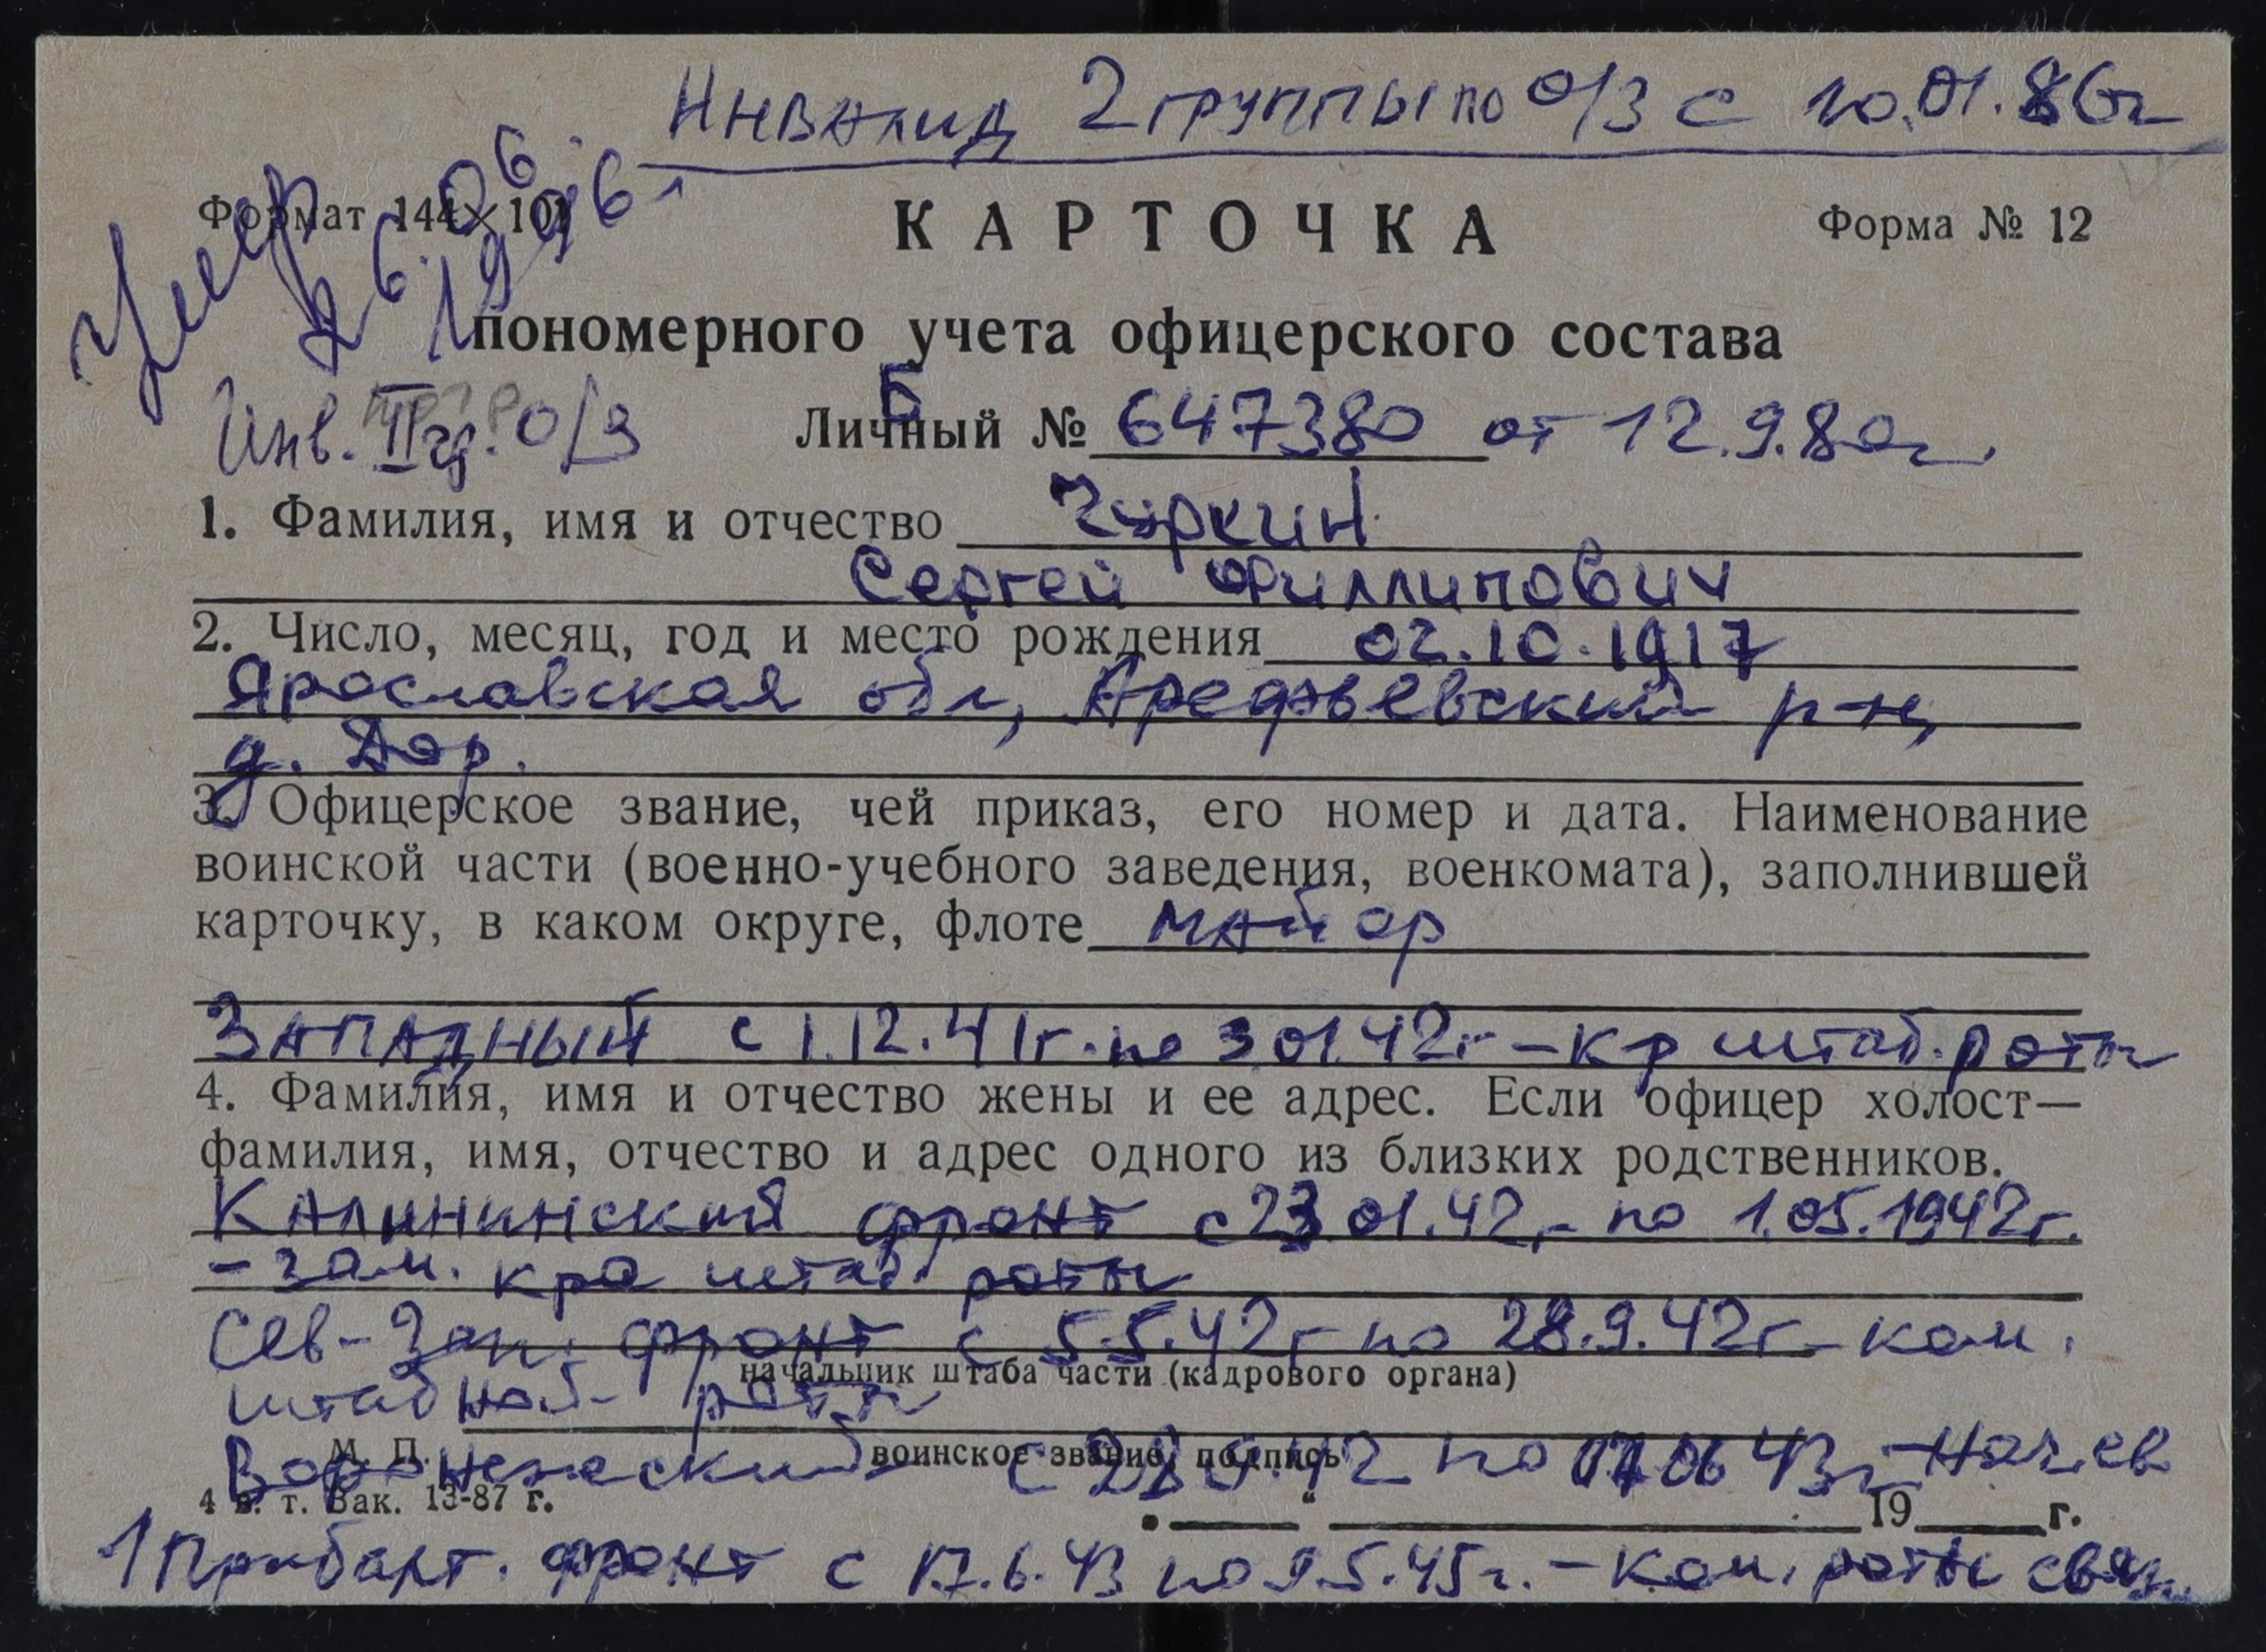 Инвалид 2 группы по о/з с 10.01.86г
Умер 26.06.1996г
Формат 144×101
КАРТОЧКА
Форма № 12
пономерного учета офицерского состава
Инв. II гр. о/з
Личный № Б 647380 от 12.9.80г.
1. Фамилия, имя и отчество Чуркин
Сергей Филлипович
2. Число, месяц, год и место рождения 02.10.1917
Ярославская обл, Арефьевский р-н,
д. Дор.
3. Офицерское звание, чей приказ, его номер и дата. Наименование
воинской части (военно-учебного заведения, военкомата), заполнившей
карточку, в каком округе, флоте майор
Западный с 1.12.41г. по 3 01.42г - к-р штаб. роты
4. Фамилия, имя и отчество жены и ее адрес. Если офицер холост—
фамилия, имя, отчество и адрес одного из близких родственников.
Калининский фронт с 23 01.42г - по 1.05.1942г.
- зам. к-ра штаб. роты
Сев-Зап. фронт с 5.5.42г по 28.9.42г - ком.
начальник штаба части (кадрового органа)
штабной роты
М. П. воинское звание, подпись
Воронежский с 28 9.42 по 17 06 43г - Нач. св
4 в. т. Зак. 13-87 г.
" " 19 г.
1 Прибалт. фронт с 17.6.43 по 9.5.45г. - Ком. роты связи